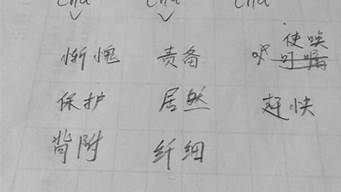 惭愧 责备 使唤
保护 居然 赶快
背附 纤细